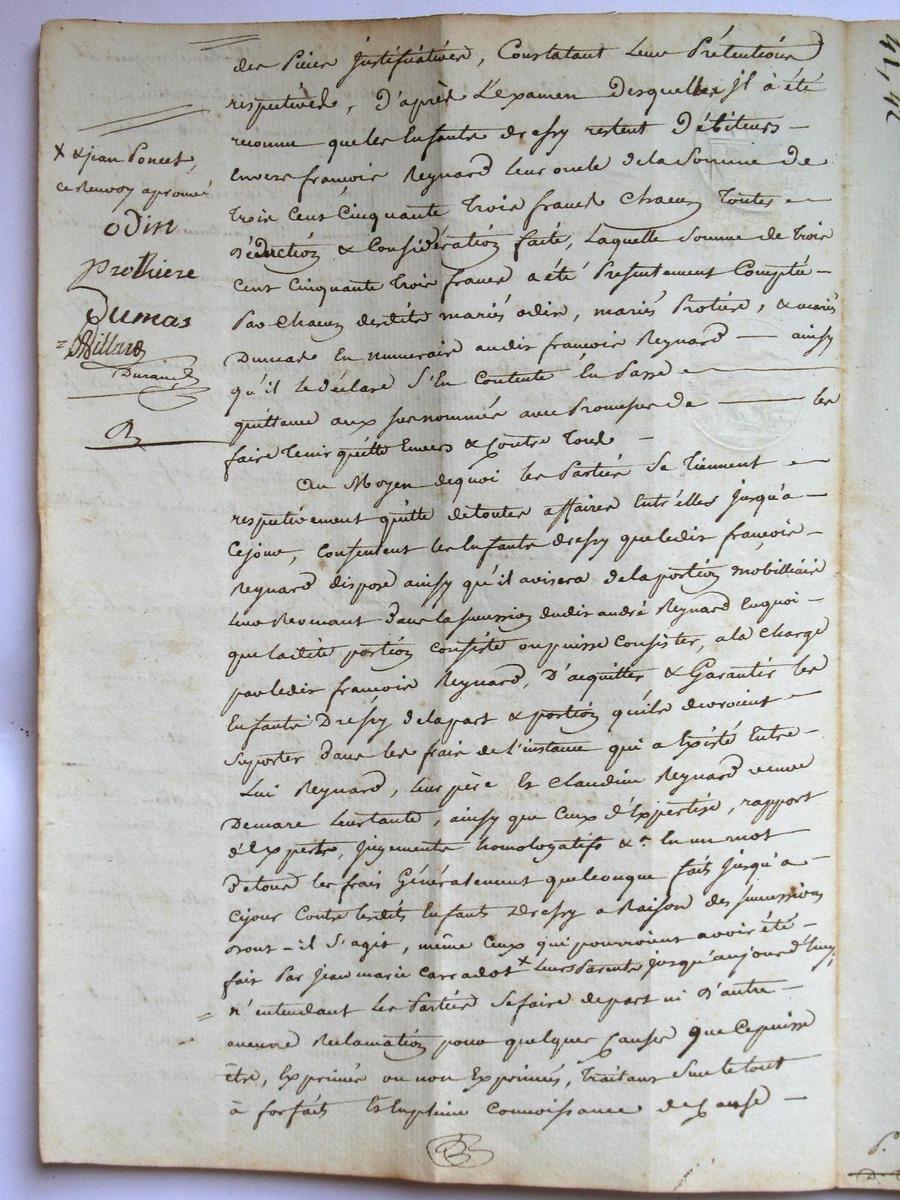 des Pièces Justificatives, Constatant Leurs Prétentions
respectives, D'après L'examen Desquelles Il à été
reconnu que les Enfants dressy restent Débiteurs
Envers françois Reynard Leur oncle de la Somme de
trois Cent Cinquante trois francs Chacun toutes
Déduction & Considération faite, Laquelle Somme de trois
Cent Cinquante trois francs a été Présentement Comptée
Par Chacun desdits mariés odin, mariés Protière, & mariés
Dumas En numéraire audit françois Reynard — ainsy
qu'il le déclare S'En Contente En Passe
quittance aux surnommés avec Promesse de — les
faire tenir quitte Envers & Contre tous
Au Moyen dequoi les Parties Se tiennent
respectivement quitte de toutes affaires Entr'elles jusqu'a
Cejour, Consentent les Enfants dressy que ledit françois
Reynard dispose ainsy qu'il avisera de la portion mobilliaire
Leur Revenant Dans la succession dudit andré Reynard Enquoi
que ladite portion Consiste ou puisse Consister, a la Charge
par ledit françois Reynard, D'acquitter & Garantir les
Enfants Dressy de la part & portion qu'ils devroient
Suporter Dans les frais de l'instance qui a Existé Entre
Lui Reynard, leur père Et Claudine Reynard veuve
Demare Leur tante, ainsy que Ceux d'Expertise, rapport
d'Experts, Jugements homologatifs &a. En un mot
De tous les frais Généralement quelconque faits Jusqu'a
Cejour Contre lesdits Enfants Dressy a Raison des successions
dont-il S'agit, même Ceux qui pourroient avoir été
fait Par Jean marie Carradot x Leurs Parents Jusqu'aujourd'huy,
n'entendant Les Parties Se faire de part ni D'autre
aucune Réclamation pour quelques Causes que Cepuisse
être, Exprimés ou non Exprimés, traitant Sur le tout
à forfaits Et En pleine Connoissance de Cause
X & jean Poncet,
ce Renvoy aprouvé
odin
protiere
Dumas
Durand